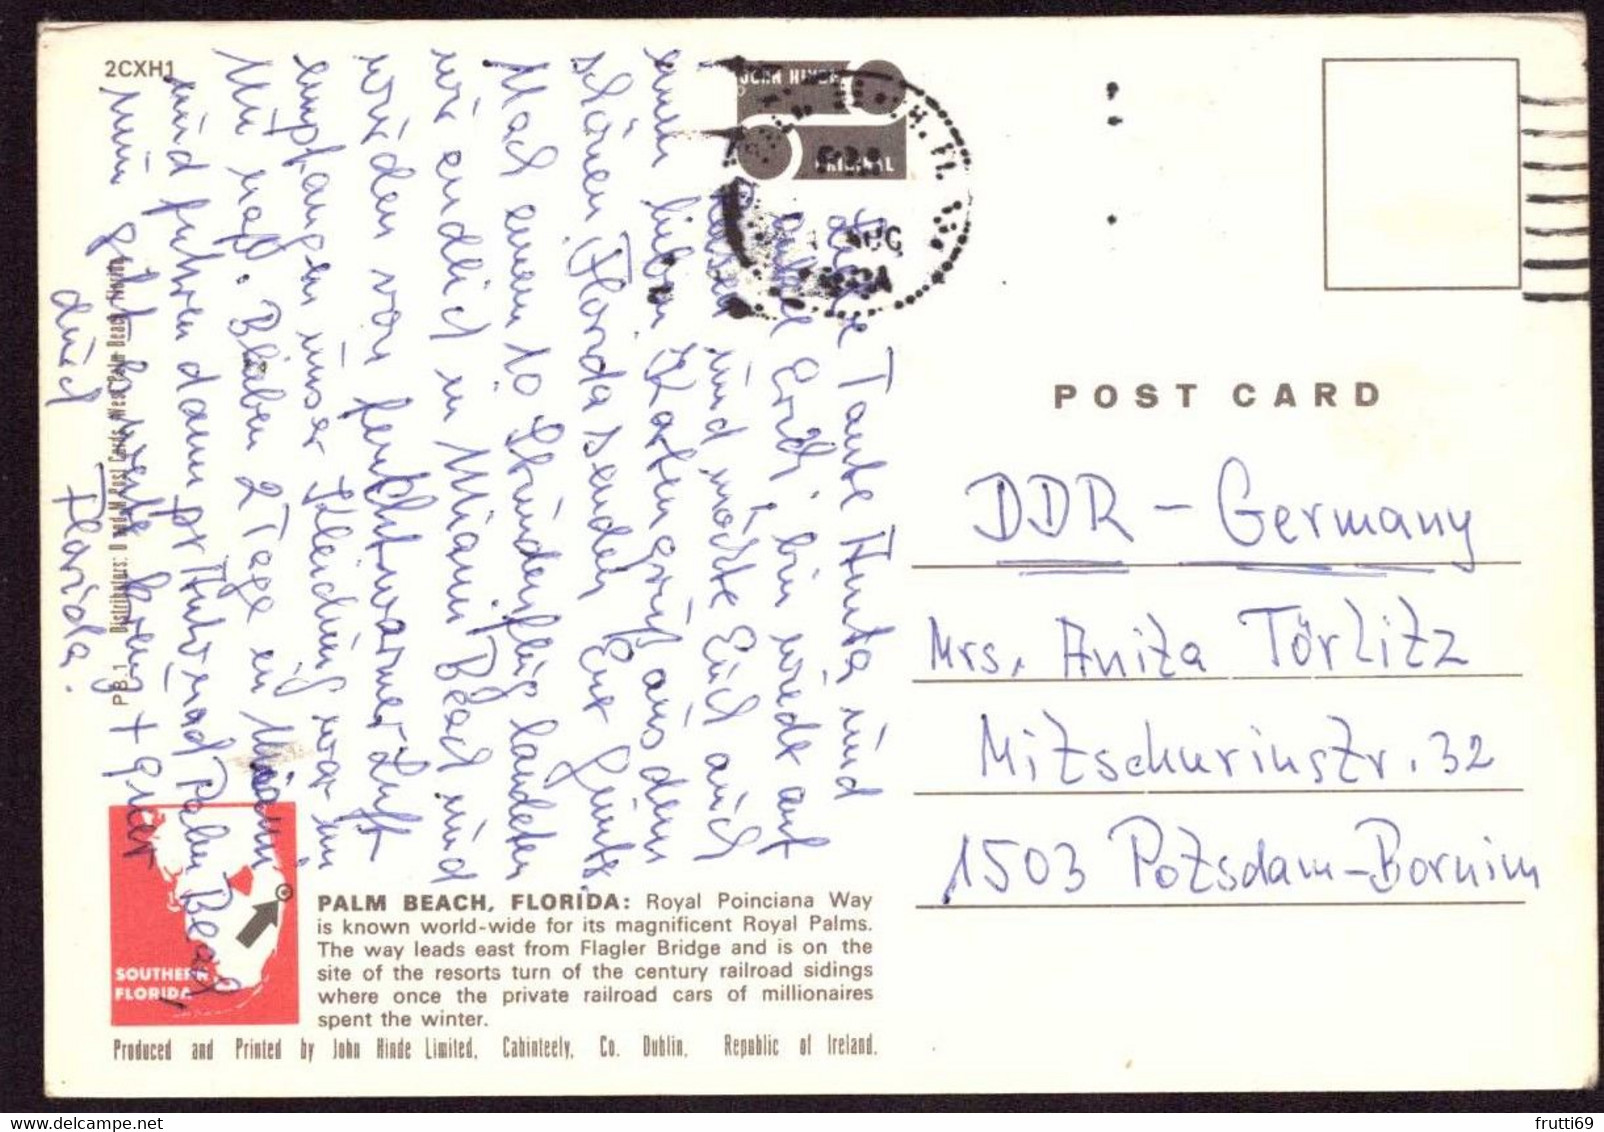 2CXH1
JOHN HINDE
ORIGINAL
AUG
Liebe Tante Herta und
Onkel Erich, bin wieder auf
Reisen und möchte Euch auch
einen lieben Kartengruß aus dem
schönen Florida senden Eure
Nach einem 10 Stündenflug landeten
wir endlich in Miami Beach und
würden von feuchtwarmer Luft
empfangen unser Kleidung war im
Nu naß. Blieben 2 Tage in Miami
und fuhren dann pr Palm Beach,
Nun geht weite Kreuz + quer
durch Florida.
P.B. 1 Distributors: D and M Post Cards, West Palm Beach, Florida
SOUTHERN
FLORIDA
PALM BEACH, FLORIDA: Royal Poinciana Way
is known world-wide for its magnificent Royal Palms.
The way leads east from Flagler Bridge and is on the
site of the resorts turn of the century railroad sidings
where once the private railroad cars of millionaires
spent the winter.
Produced and Printed by John Hinde Limited, Cabinteely, Co. Dublin, Republic of Ireland.
POST CARD
DDR - Germany
Mrs. Anita Törlitz
Mitschurinstr. 32
1503 Potsdam-Bornim
frutti69